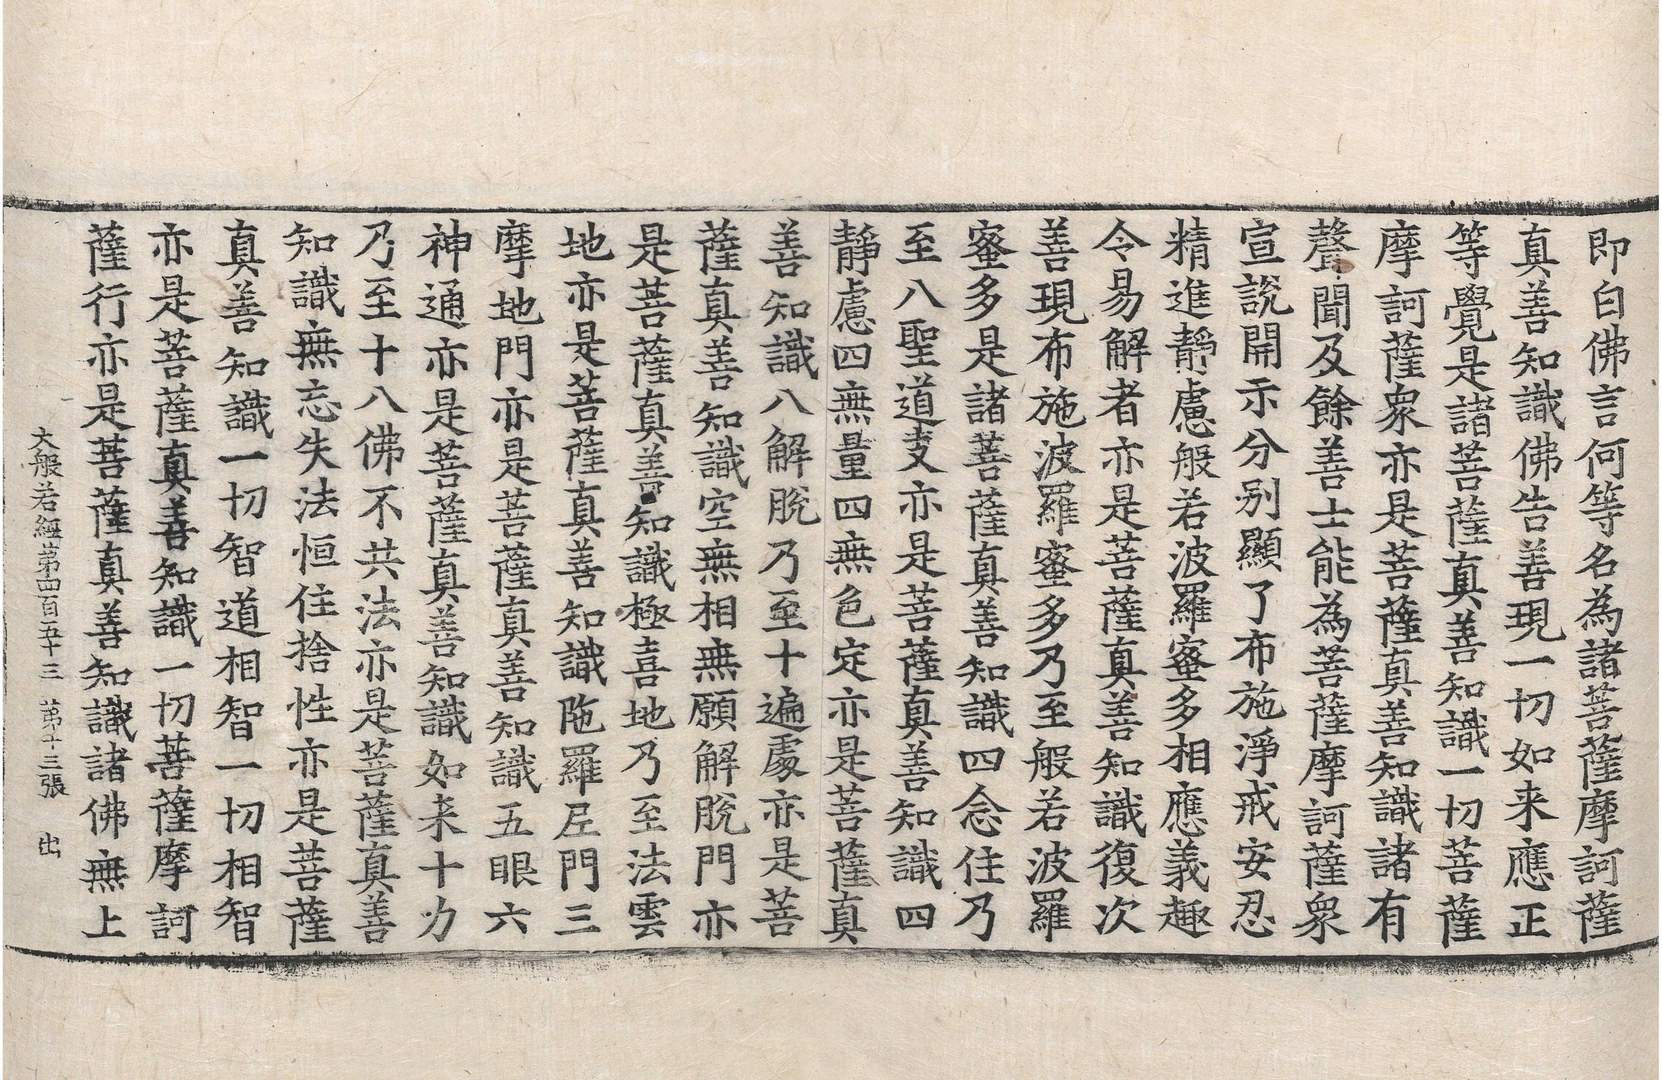 即白佛言何等名為諸菩薩摩訶薩
真善知識佛告善現一切如来應正
等覺是諸菩薩真善知識一切菩薩
摩訶薩衆亦是菩薩真善知識諸有
聲聞及餘善士能為菩薩摩訶薩衆
宣說開示分別顯了布施淨戒安忍
精進靜慮般若波羅蜜多相應義趣
令易解者亦是菩薩真善知識復次
善現布施波羅蜜多乃至般若波羅
蜜多是諸菩薩真善知識四念住乃
至八聖道支亦是菩薩真善知識四
靜慮四無量四無色定亦是菩薩真
善知識八解脫乃至十遍處亦是菩
薩真善知識空無相無願解脫門亦
是菩薩真善知識極喜地乃至法雲
地亦是菩薩真善知識陁羅尼門三
摩地門亦是菩薩真善知識五眼六
神通亦是菩薩真善知識如来十力
乃至十八佛不共法亦是菩薩真善
知識無忘失法恒住捨性亦是菩薩
真善知識一切智道相智一切相智
亦是菩薩真善知識一切菩薩摩訶
薩行亦是菩薩真善知識諸佛無上
大般若經第四百五十三 第十三張 出